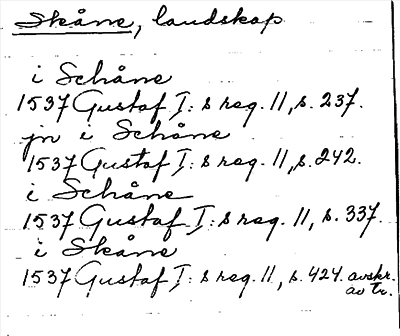 Skåne, landskap
i Schåne
1537 Gustaf I:s reg. 11, s. 237.
jn i Schåne
1537 Gustaf I:s reg. 11, s. 242.
i Schåne
1537 Gustaf I:s reg. 11, s. 337.
i Skåne
1537 Gustaf I:s reg. 11, s. 424. avskr. av tr.